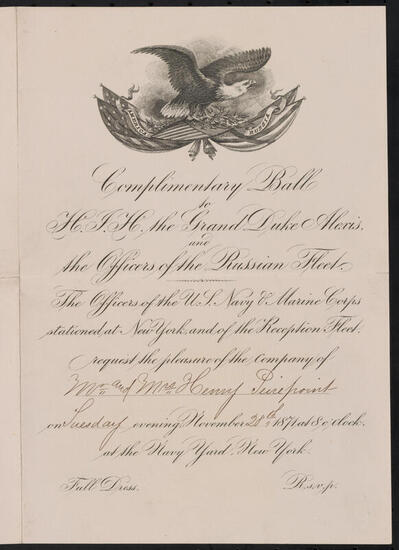 AMERICA
RUSSIA
Complimentary Ball
to
H.I.H. the Grand Duke Alexis,
and
the Officers of the Russian Fleet.
The Officers of the U.S. Navy & Marine Corps
stationed at New York and of the Reception Fleet
request the pleasure of the company of
Mr. and Mrs. Henry Pierepoint
on Tuesday evening, November 28th 1871 at 8 o'clock.
at the Navy Yard, New York.
Full Dress. R.s.v.p.